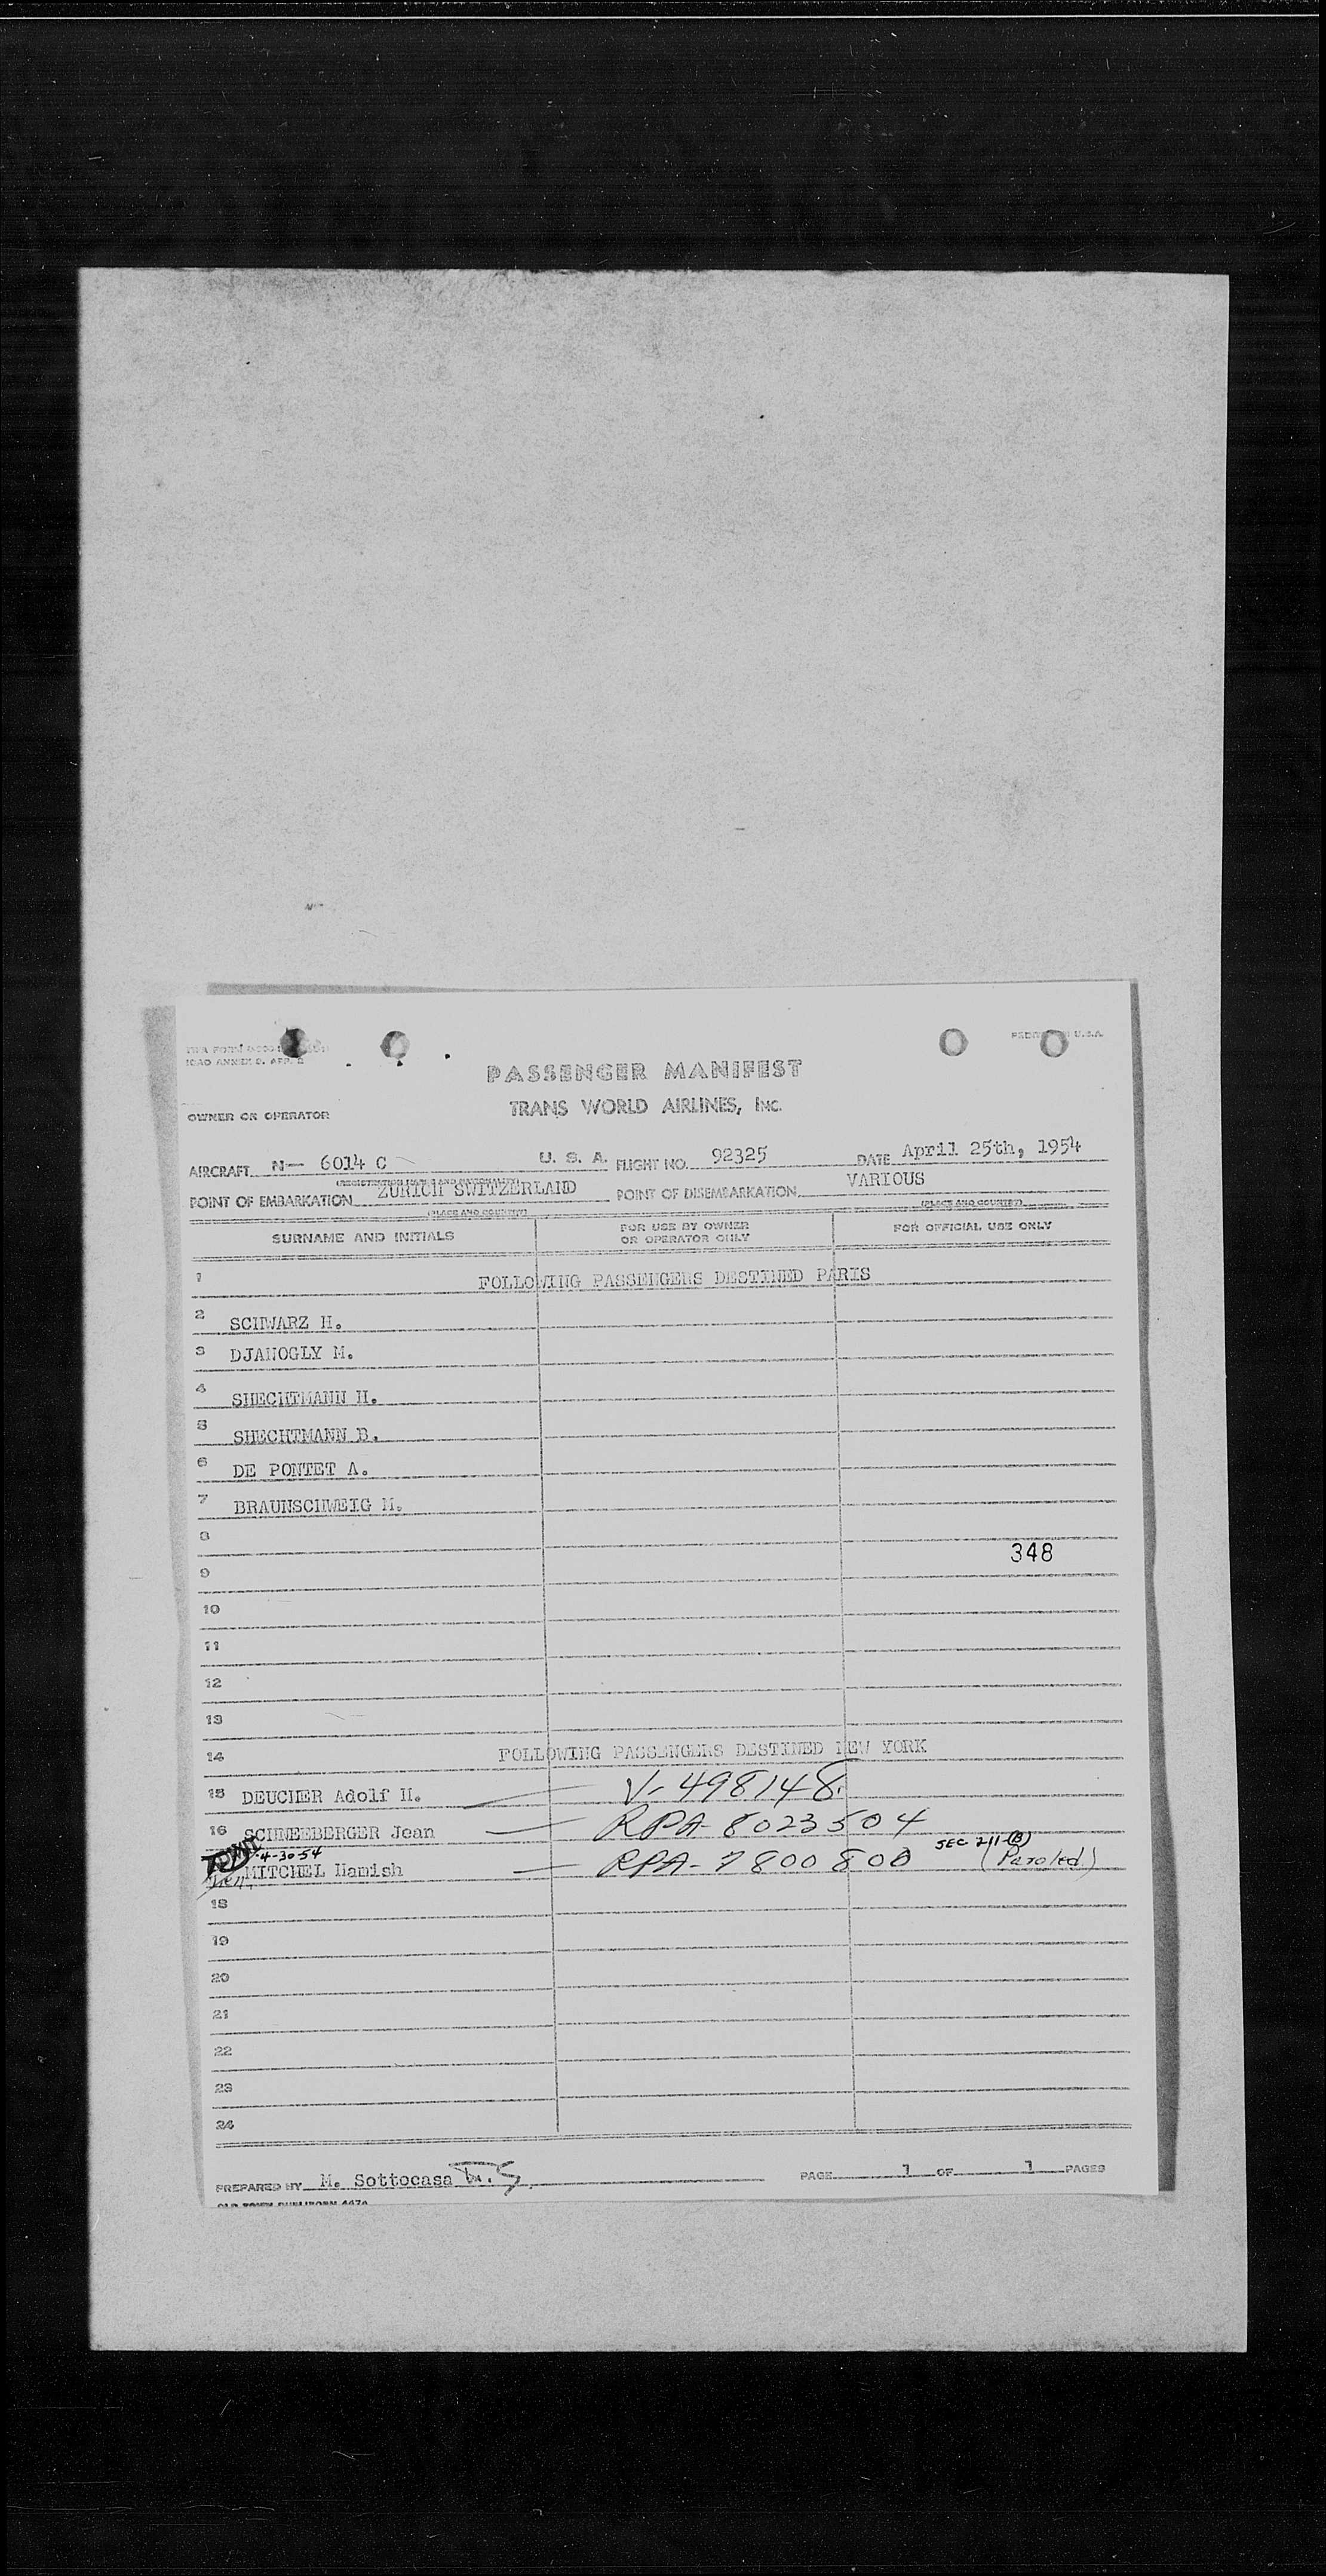 ICAO ANNEX 9, APP. 2
PRINTED IN U.S.A.
PASSENGER MANIFEST
TRANS WORLD AIRLINES, INC.
OWNER OR OPERATOR
AIRCRAFT N— 6014 C U. S. A. FLIGHT NO. 92325 DATE April 25th, 1954
(REGISTRATION MARKS AND NATIONALITY)
POINT OF EMBARKATION ZURICH SWITZERLAND POINT OF DISEMBARKATION VARIOUS
(PLACE AND COUNTRY) (PLACE AND COUNTRY)
SURNAME AND INITIALS FOR USE BY OWNER OR OPERATOR ONLY FOR OFFICIAL USE ONLY
1 FOLLOWING PASSENGERS DESTINED PARIS
2 SCHWARZ H.
3 DJANOGLY M.
4 SHECHTMANN H.
5 SHECHTMANN B.
6 DE PONTET A.
7 BRAUNSCHWEIG M.
8
348
9
10
11
12
13
14 FOLLOWING PASSENGERS DESTINED NEW YORK
15 DEUCHER Adolf H. — V-498148
16 SCHNEEBERGER Jean — RPA-8023504
4-30-54 SEC 211-(B)
MITCHEL Hamish — RPA-7800800 (Paroled)
18
19
20
21
22
23
24
PREPARED BY M. Sottocasa PAGE 1 OF 1 PAGES